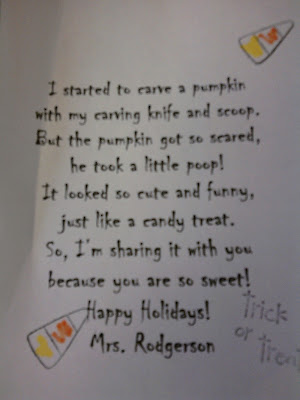 I started to carve a pumpkin
with my carving knife and scoop.
But the pumpkin got so scared,
he took a little poop!
It looked so cute and funny,
just like a candy treat.
So, I'm sharing it with you
because you are so sweet!
Happy Holidays!
Mrs. Rodgerson
Trick
or Treat